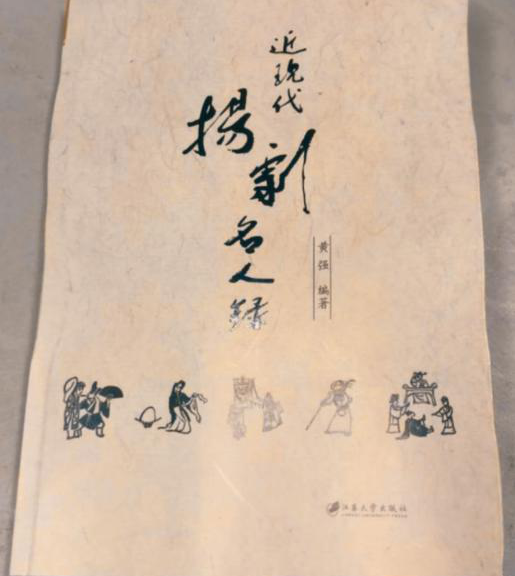 近现代
揚劇
名人録
黄强 编著
江苏大学出版社